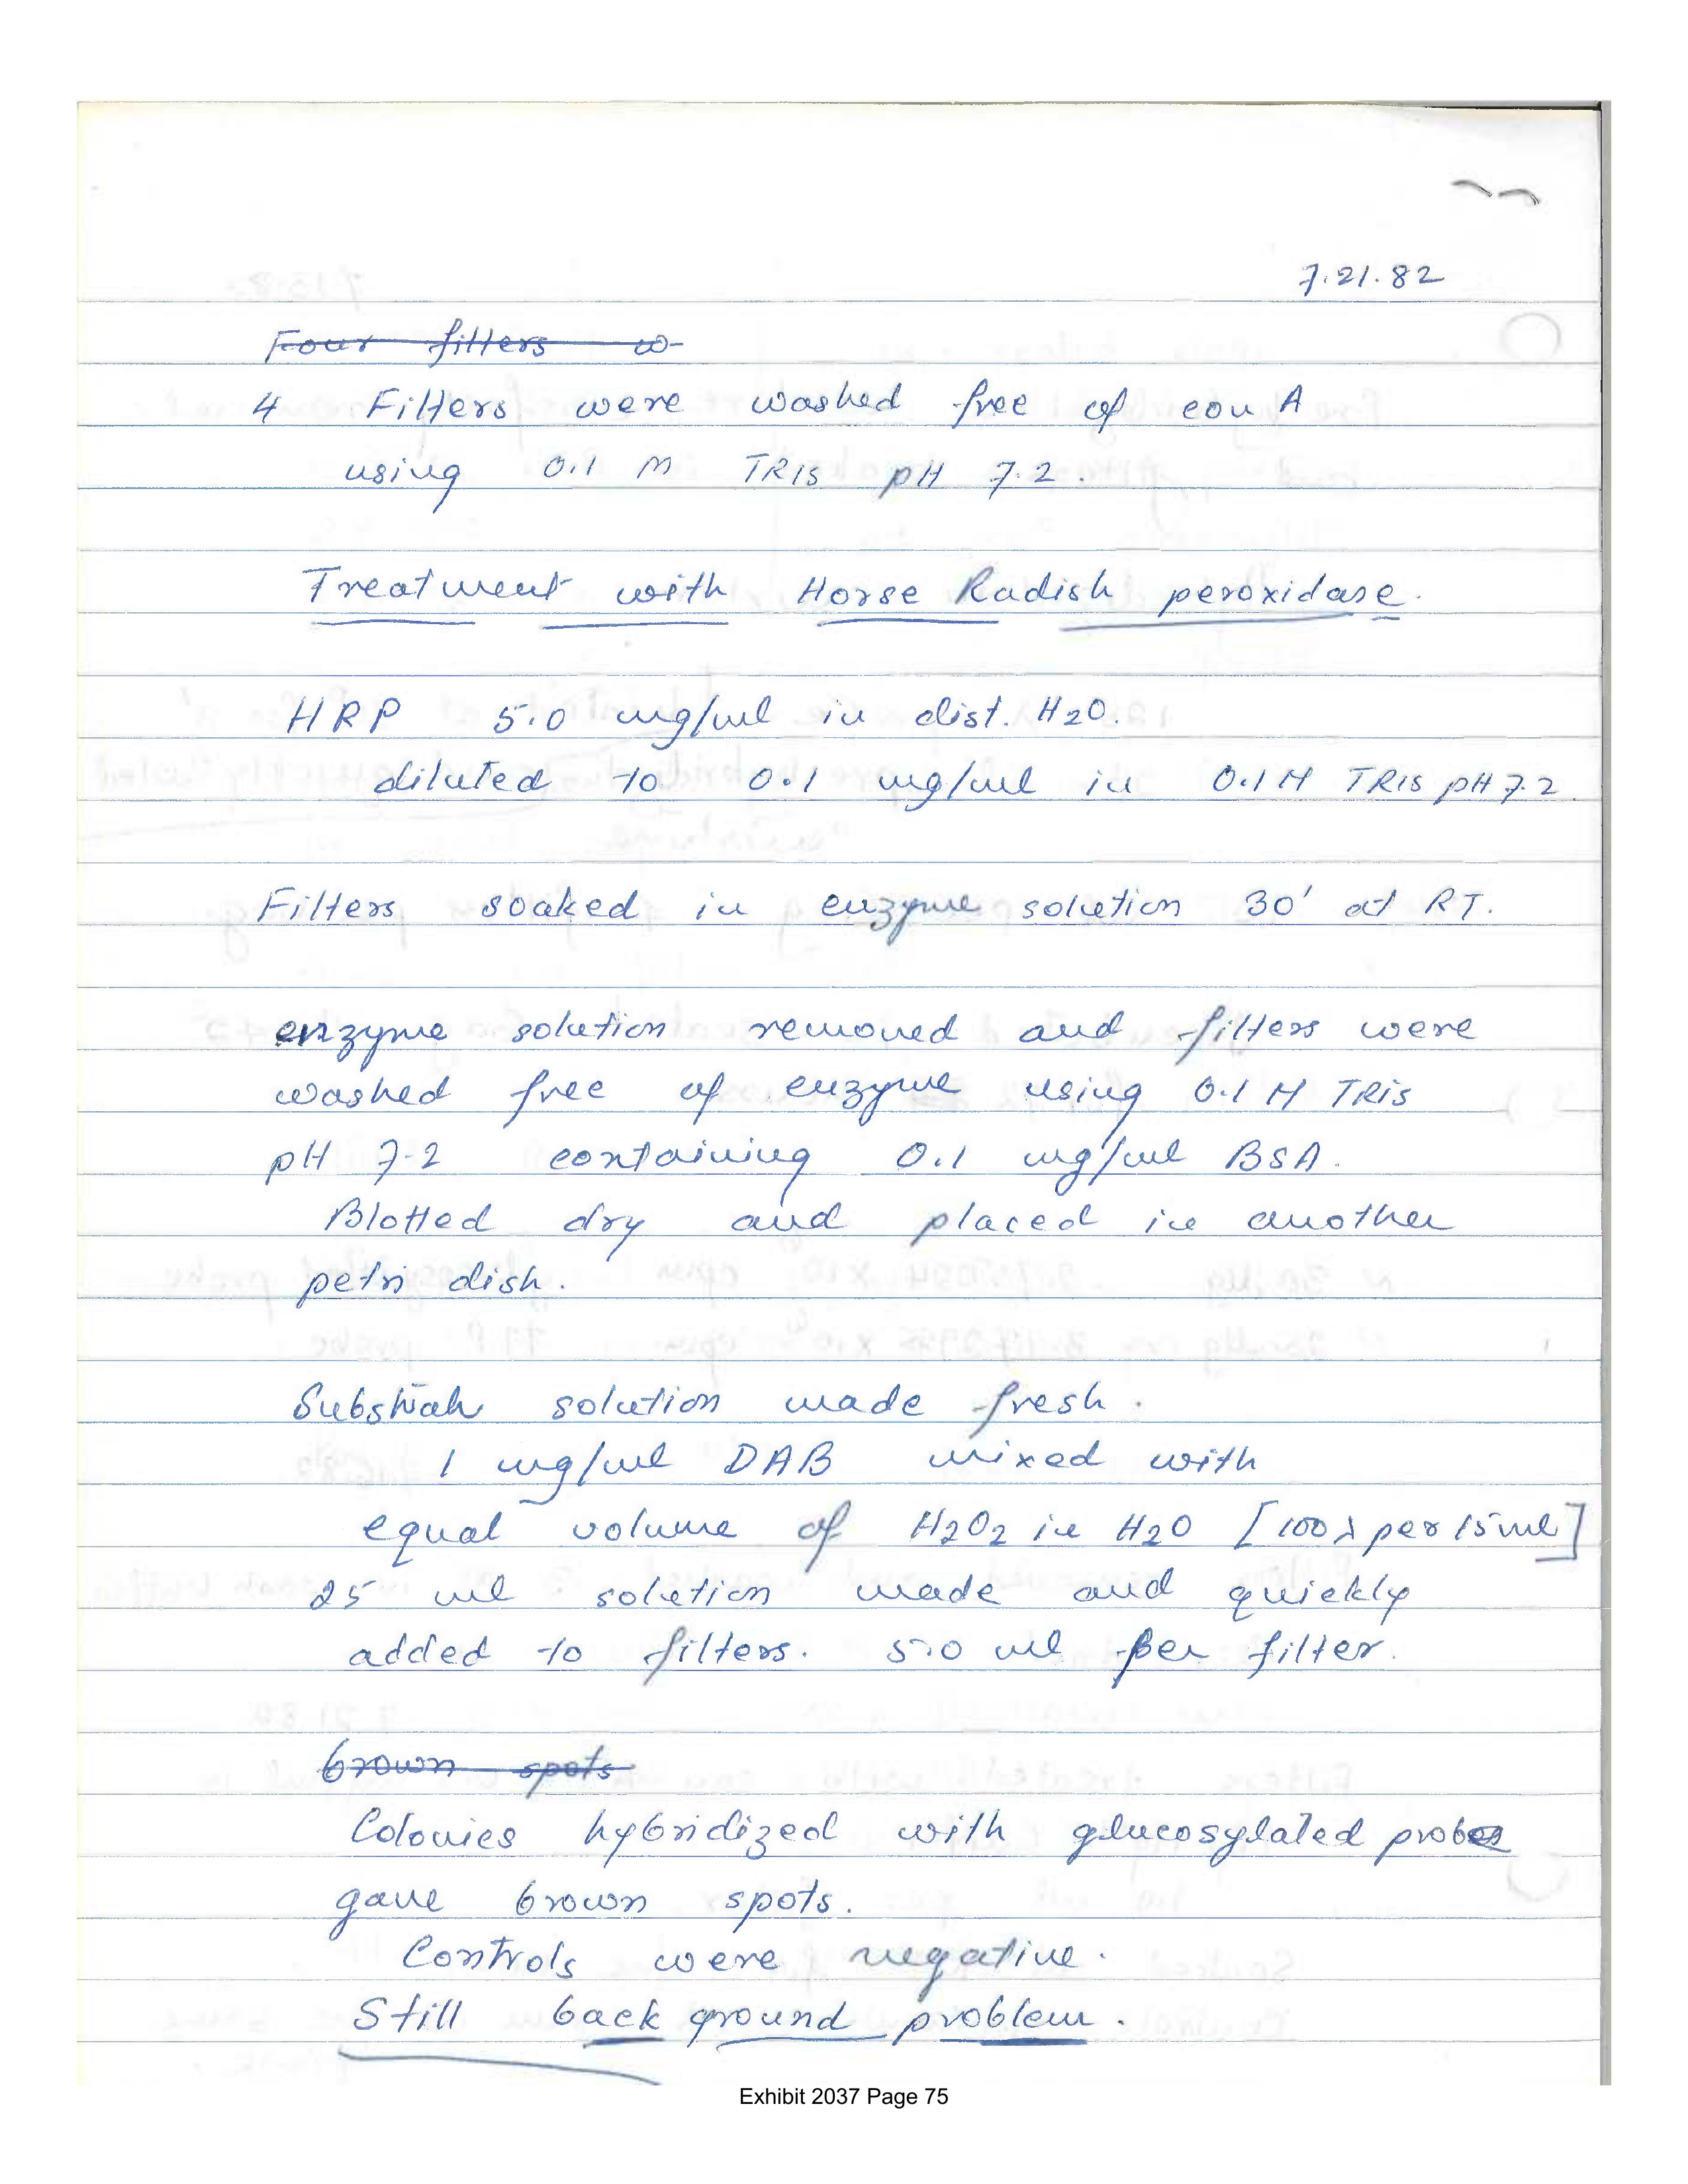 7.21.82
Four filters w
4 Filters were washed free of con A
using 0.1 M TRIS pH 7.2.
Treatment with Horse Radish peroxidase.
HRP 5.0 mg/ml in dist. H2O.
diluted to 0.1 mg/ml in 0.1 M TRIS pH 7.2.
Filters soaked in enzyme solution 30' at RT.
enzyme solution removed and filters were
washed free of enzyme using 0.1 M TRIS
pH 7.2 containing 0.1 mg/ml BSA.
Blotted dry and placed in another
petri dish.
Substrate solution made fresh.
1 mg/ml DAB mixed with
equal volume of H2O2 in H2O [100 λ per 15 ml]
25 ml solution made and quickly
added to filters. 5.0 ml per filter.
brown spots
Colonies hybridized with glucosylated probes
gave brown spots.
Controls were negative.
Still back ground problem.
Exhibit 2037 Page 75